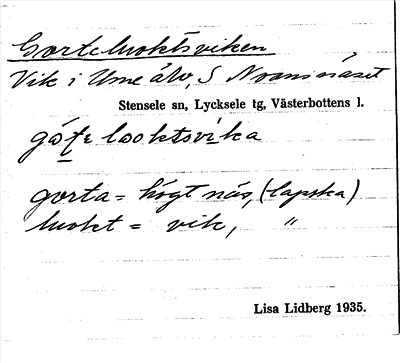 Gorteluoktsviken
Vik i Ume älv, S Noasnäset
Stensele sn, Lycksele tg, Västerbottens l.
looktsvika
gorta = högt näs, (lapska)
luokt = vik, "
Lisa Lidberg 1935.